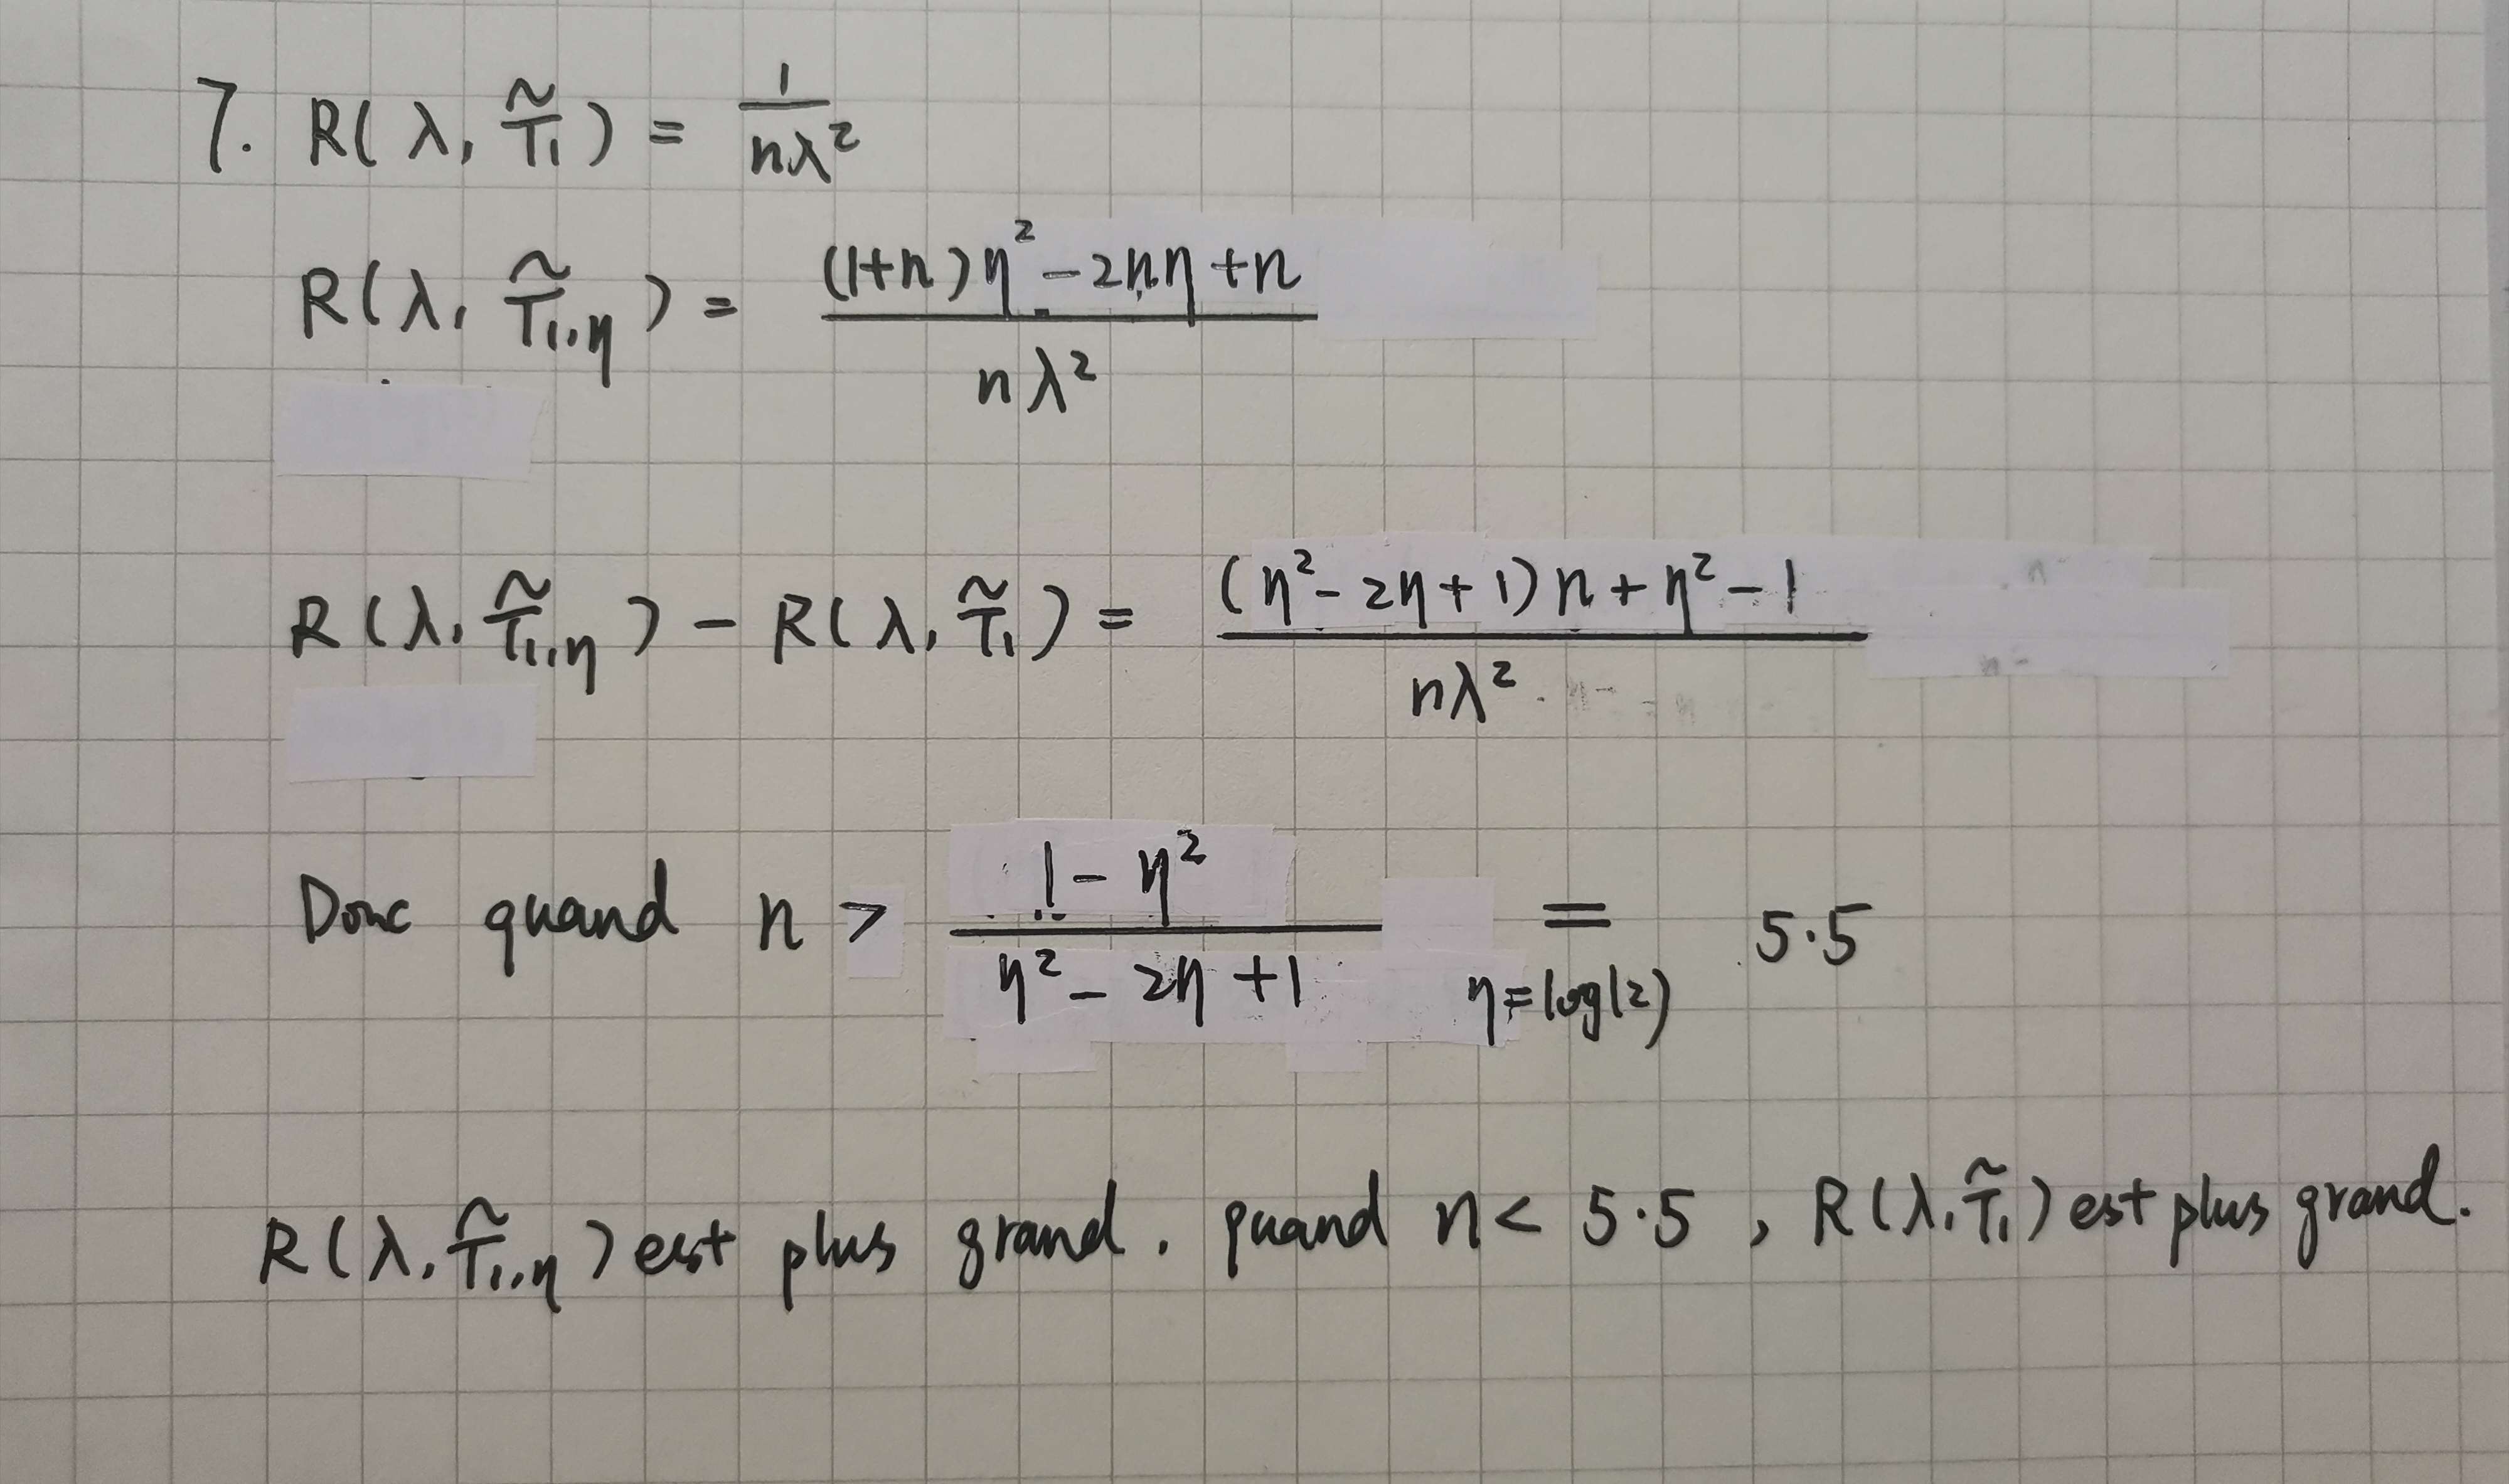 7. R(λ, T̃₁) = 1/(nλ²)
R(λ, T̃₁,η) = ((1+n)η² - 2nη + n)/(nλ²)
R(λ, T̃₁,η) - R(λ, T̃₁) = ((η² - 2η + 1)n + η² - 1)/(nλ²)
Donc quand n > (1 - η²)/(η² - 2η + 1) = 5.5
η=log(2)
R(λ, T̃₁,η) est plus grand. quand n < 5.5, R(λ, T̃₁) est plus grand.